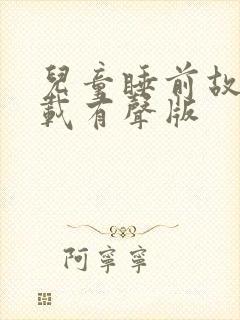 兒童睡前故
載有聲版
阿寧寧